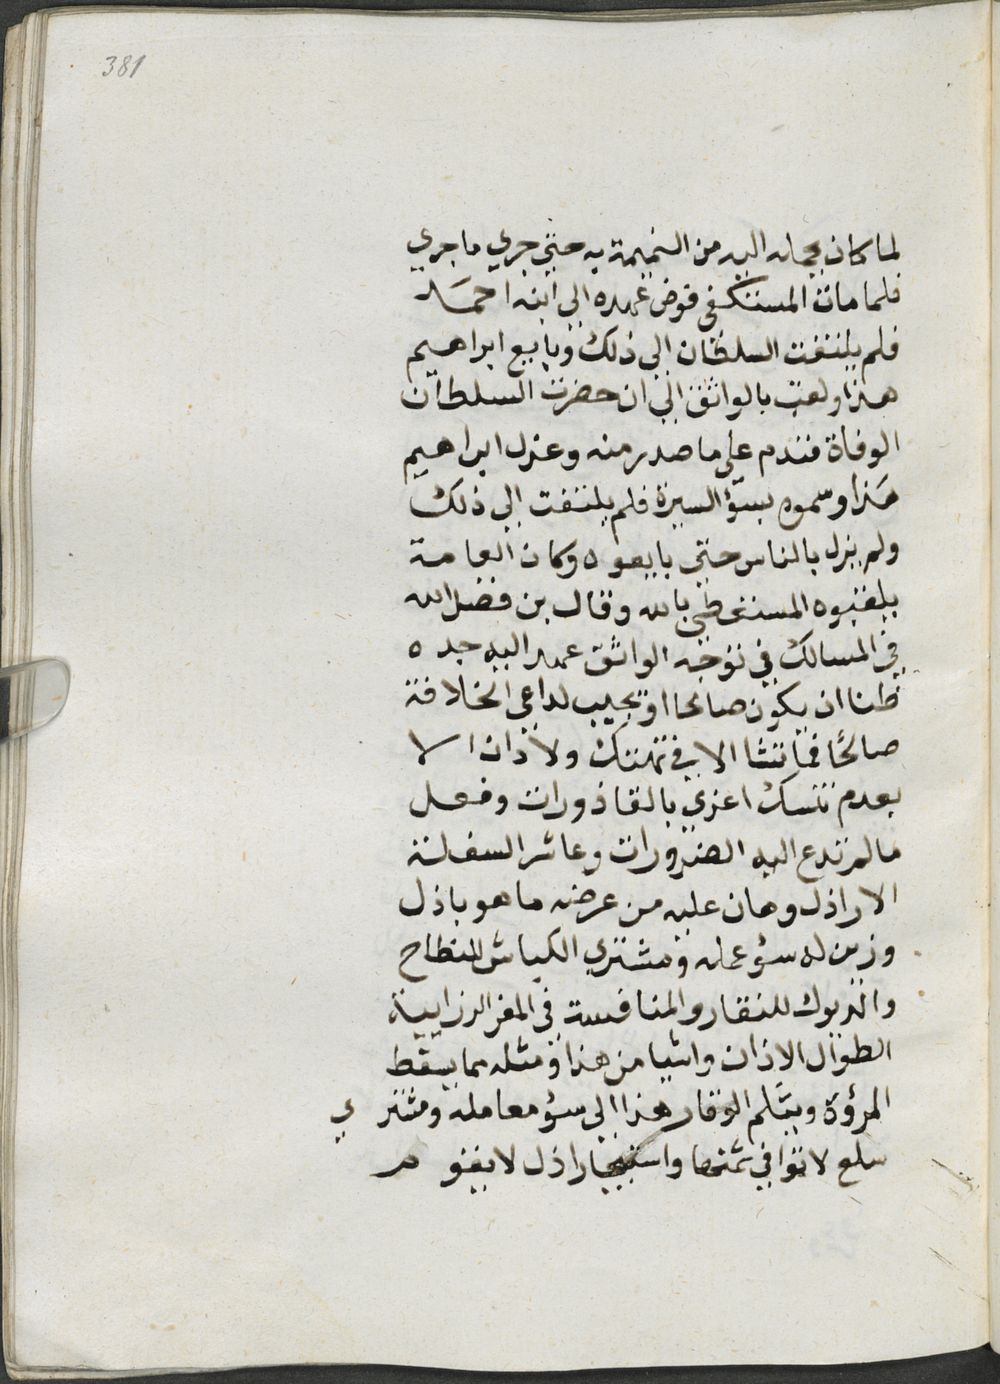 381
لما كان يحمله اليه من النميمة به حتي جري ما جري
فلما مات المستكفي فوض عهده الي ابنه احمد
فلم يلتفت السلطان الي ذلك وبايع ابراهيم
هذا ولقب بالواثق الي ان حضرت السلطان
الوفاة فندم علي ما صدر منه وعزل ابراهيم
هذا وسموه بسؤ السيرة فلم يلتفت الي ذلك
ولم يزل بالناس حتي بايعوه وكان العامة
يلقبوه المستعطي بالله وقال بن فضل الله
في المسالك في ترجمة الواثق عهد اليه جده
ظنا ان يكون صالحا او يجيب لداعي الخلافة
صالحًا فما نشا الا في تهتك ولا دان الا
بعدم تنسك اغري بالقاذورات وفعل
ما لم تدع اليه الضرورات وعاشر السفلة
الاراذل وهان عليه من عرضه ما هو باذل
وزين له سؤ عمله ومشتري الكباش للنطاح
والديوك للنقار والمنافسة في المعز الزرايبية
الطوال الاذان واشيا من هذا ومثله مما يسقط
المرؤة ويثلم الوقار هذا الي سؤ معاملة ومشتري
سلع لا يوافي ثمنها واستيجار اذل لا يقوم